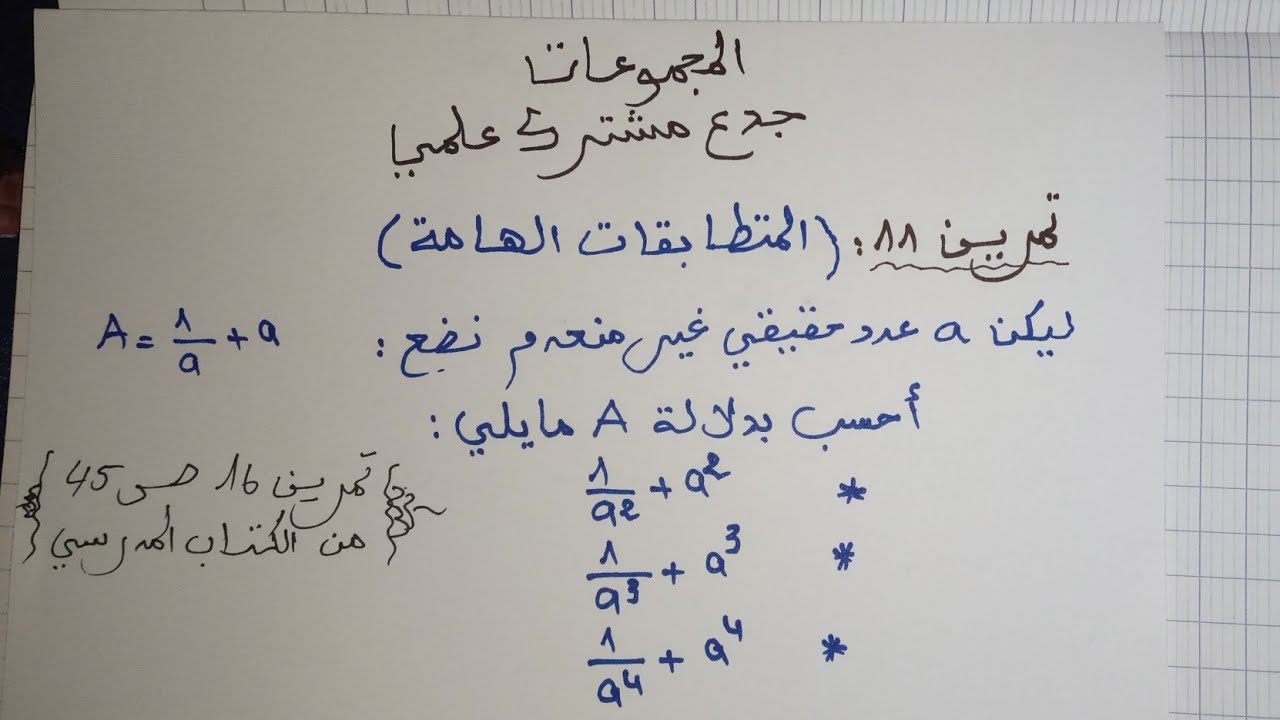 المجموعات
جدع مشترك علمي
تمرين 11: (المتطابقات الهامة)
ليكن a عدد حقيقي غير منعدم نضع : A = 1/a + a
أحسب بدلالة A مايلي :
* 1/a² + a²
* 1/a³ + a³
* 1/a⁴ + a⁴
تمرين 16 ص 45
من الكتاب المدرسي